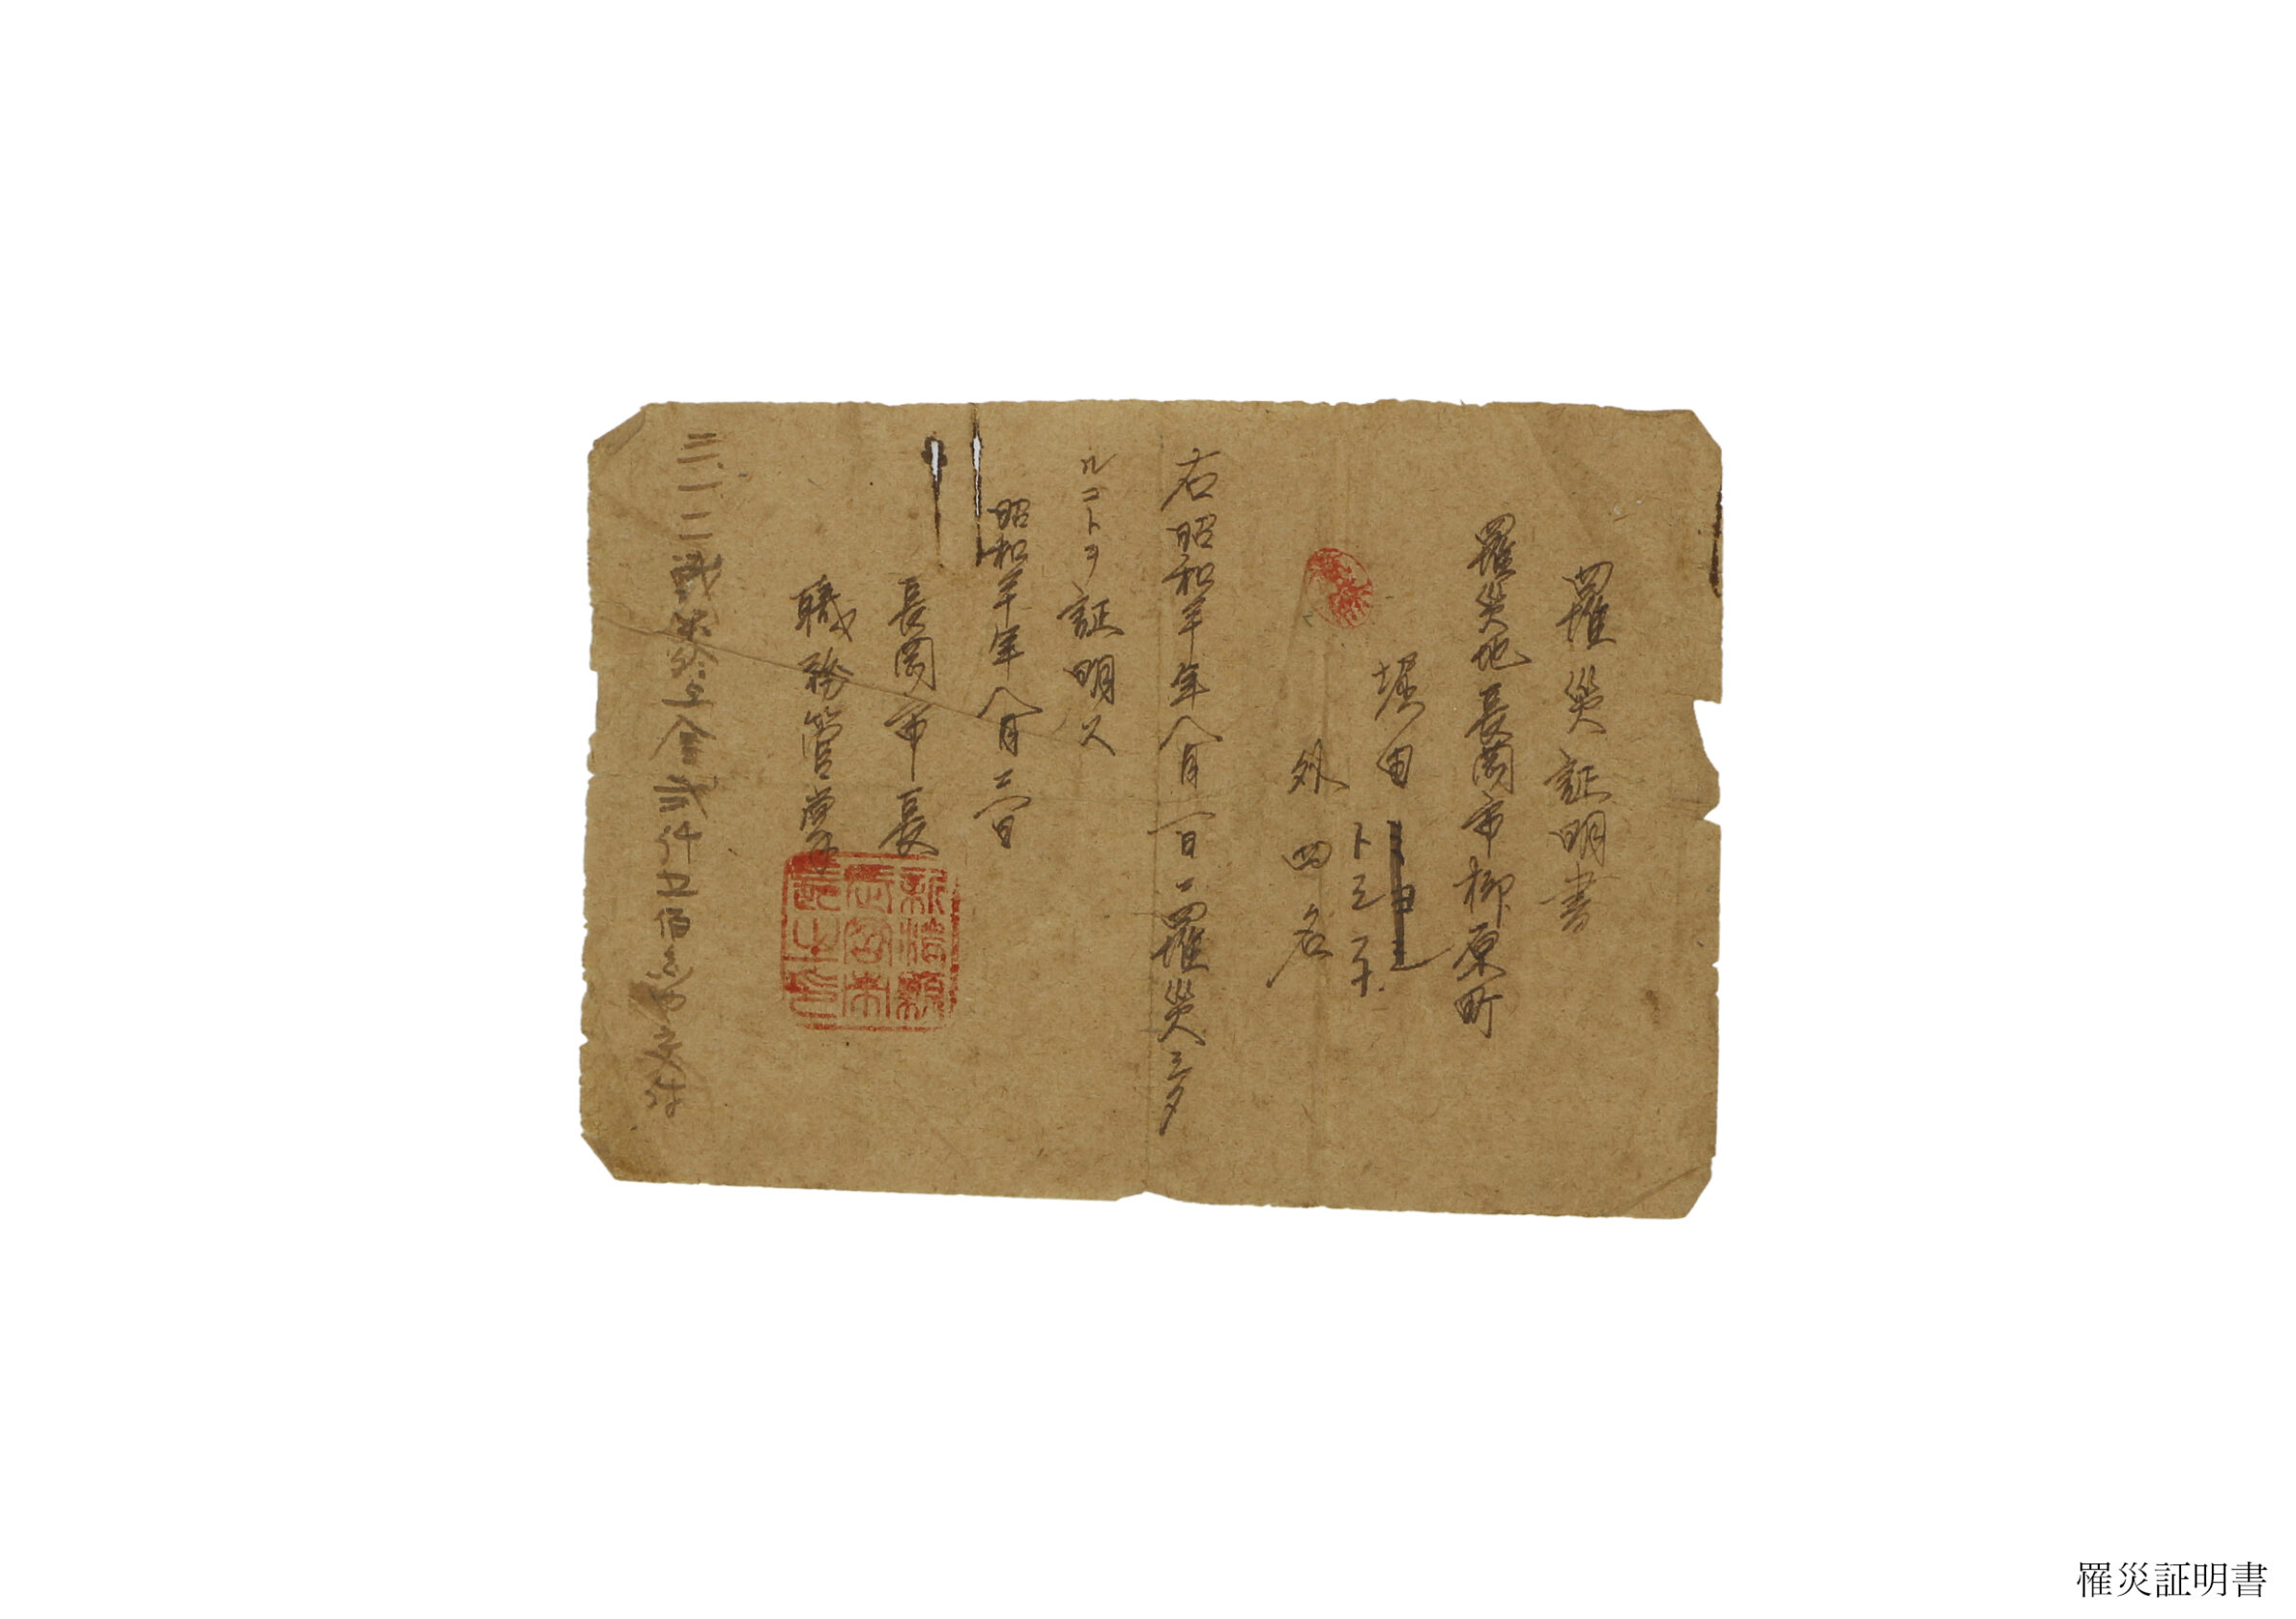 罹災証明書
罹災地長岡市柳原町
堀田
トミ子
外四名
右昭和二十年八月一日ニ罹災シタ
ルコトヲ証明ス
昭和二十年八月三日
長岡市長
職務管掌
新潟縣
長岡市
長之印
三一、二 戦災 金弐仟五佰
罹災証明書